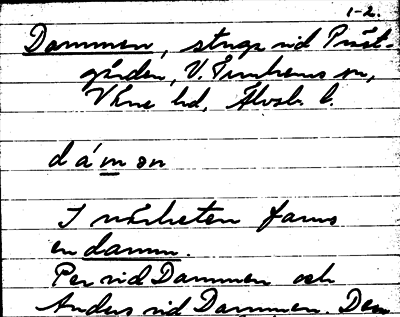 1-2.
Dammen, stuga vid Präst-
gården, V. Tunhems sn,
Väne hd, Älvsb. l.
dámən
I närheten fanns
en damm.
Per vid Dammen och
Anders vid Dammen. Den